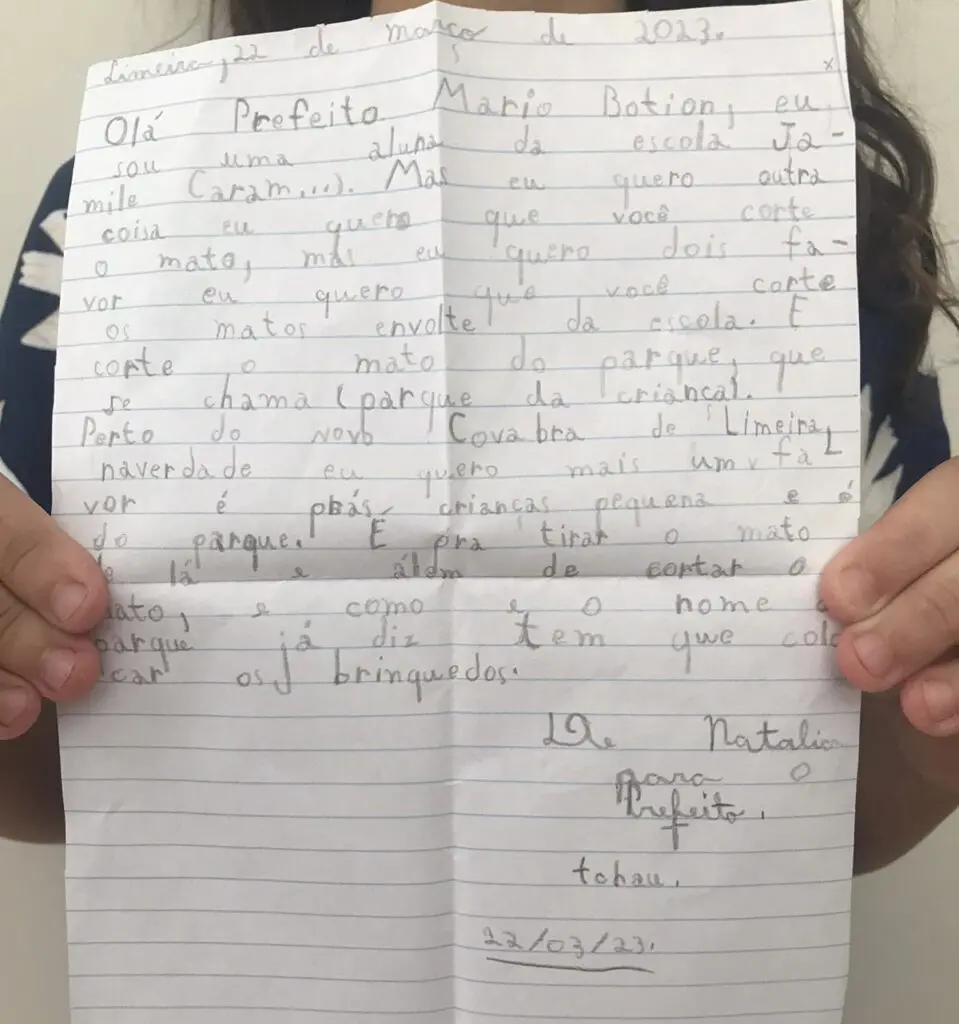 Limeira, 22 de março de 2023.
x
Olá Prefeito Mario Botion, eu
sou uma aluna da escola Ja-
mile Caram...). Mas eu quero outra
coisa eu quero que você corte
o mato, mas eu quero dois fa-
vor eu quero que você corte
os matos envolte da escola. E
corte o mato do parque, que
se chama (parque da criança).
Perto do novo Covabra de Limeira,
naverdade eu quero mais um fa
vor é prás crianças pequena e é
do parque. É pra tirar o mato
de lá e áldm de cortar o
mato, e como e o nome
parque já diz tem que colo
car os brinquedos.
De Natalia
para o
Prefeito.
tchau.
22/03/23.